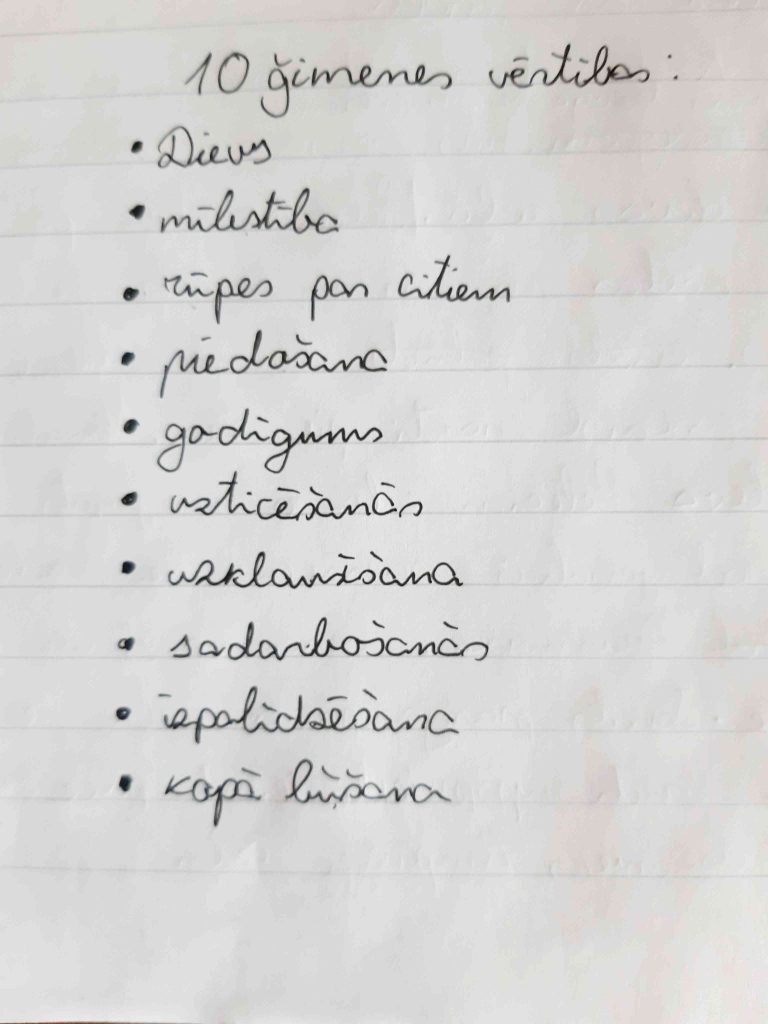 10 ģimenes vērtības:
• Dievs
• mīlestība
• rūpes par citiem
• piedošana
• godīgums
• uzticēšanās
• uzklausīšana
• sadarbošanās
• izpalīdzēšana
• kopā būšana